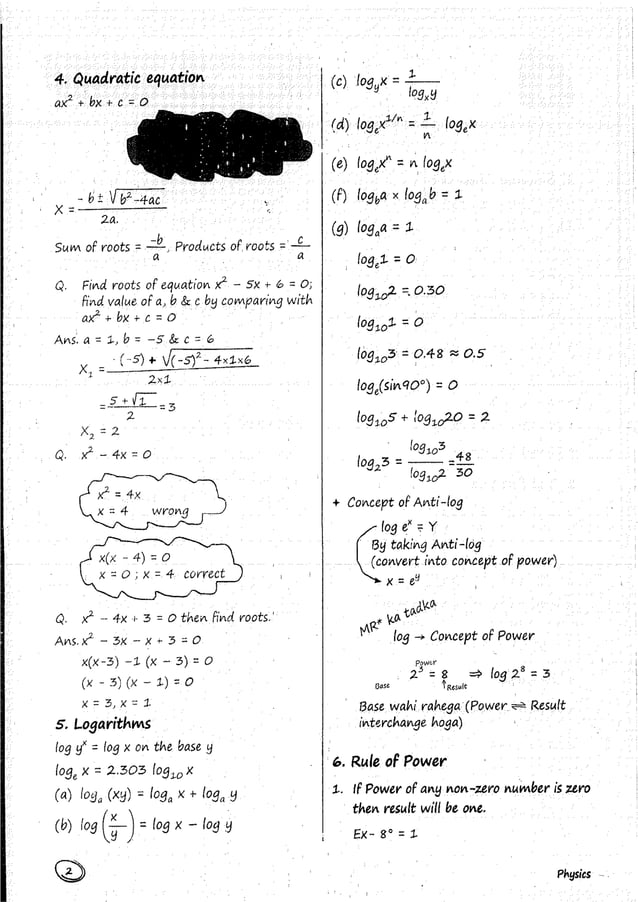 4. Quadratic equation
ax² + bx + c = 0
X = (- b ± √(b² -4ac)) / 2a.
Sum of roots = -b/a, Products of roots = c/a
Q. Find roots of equation x² - 5x + 6 = 0;
find value of a, b & c by comparing with
ax² + bx + c = 0
Ans. a = 1, b = -5 & c = 6
X₁ = (-(-5) + √((-5)² - 4×1×6)) / 2×1
= (5 + √1) / 2 = 3
X₂ = 2
Q. x² - 4x = 0
x² = 4x
x = 4 wrong
x(x - 4) = 0
x = 0 ; x = 4 correct
Q. x² - 4x + 3 = 0 then find roots.
Ans. x² - 3x - x + 3 = 0
x(x-3) -1 (x - 3) = 0
(x - 3) (x - 1) = 0
x = 3, x = 1
5. Logarithms
log yˣ = log x on the base y
logₑ x = 2.303 log₁₀ x
(a) logₐ (xy) = logₐ x + logₐ y
(b) log (x/y) = log x - log y
2
(c) log_y x = 1 / log_x y
(d) logₑx^1/n = 1/n logₑx
(e) logₑxⁿ = n logₑx
(f) log_b a × logₐ b = 1
(g) logₐa = 1
logₑ1 = 0
log₁₀2 = 0.30
log₁₀1 = 0
log₁₀3 = 0.48 ≈ 0.5
logₑ(sin90°) = 0
log₁₀5 + log₁₀20 = 2
log₂3 = log₁₀3 / log₁₀2 = 48/30
+ Concept of Anti-log
log eˣ = Y
By taking Anti-log
(convert into concept of power)
x = e^y
MR* ka tadka
log → Concept of Power
Power
2³ = 8 ⇒ log 2⁸ = 3
Base ↑Result
Base wahi rahega (Power ⇌ Result
interchange hoga)
6. Rule of Power
1. If Power of any non-zero number is zero
then result will be one.
Ex- 8⁰ = 1
Physics